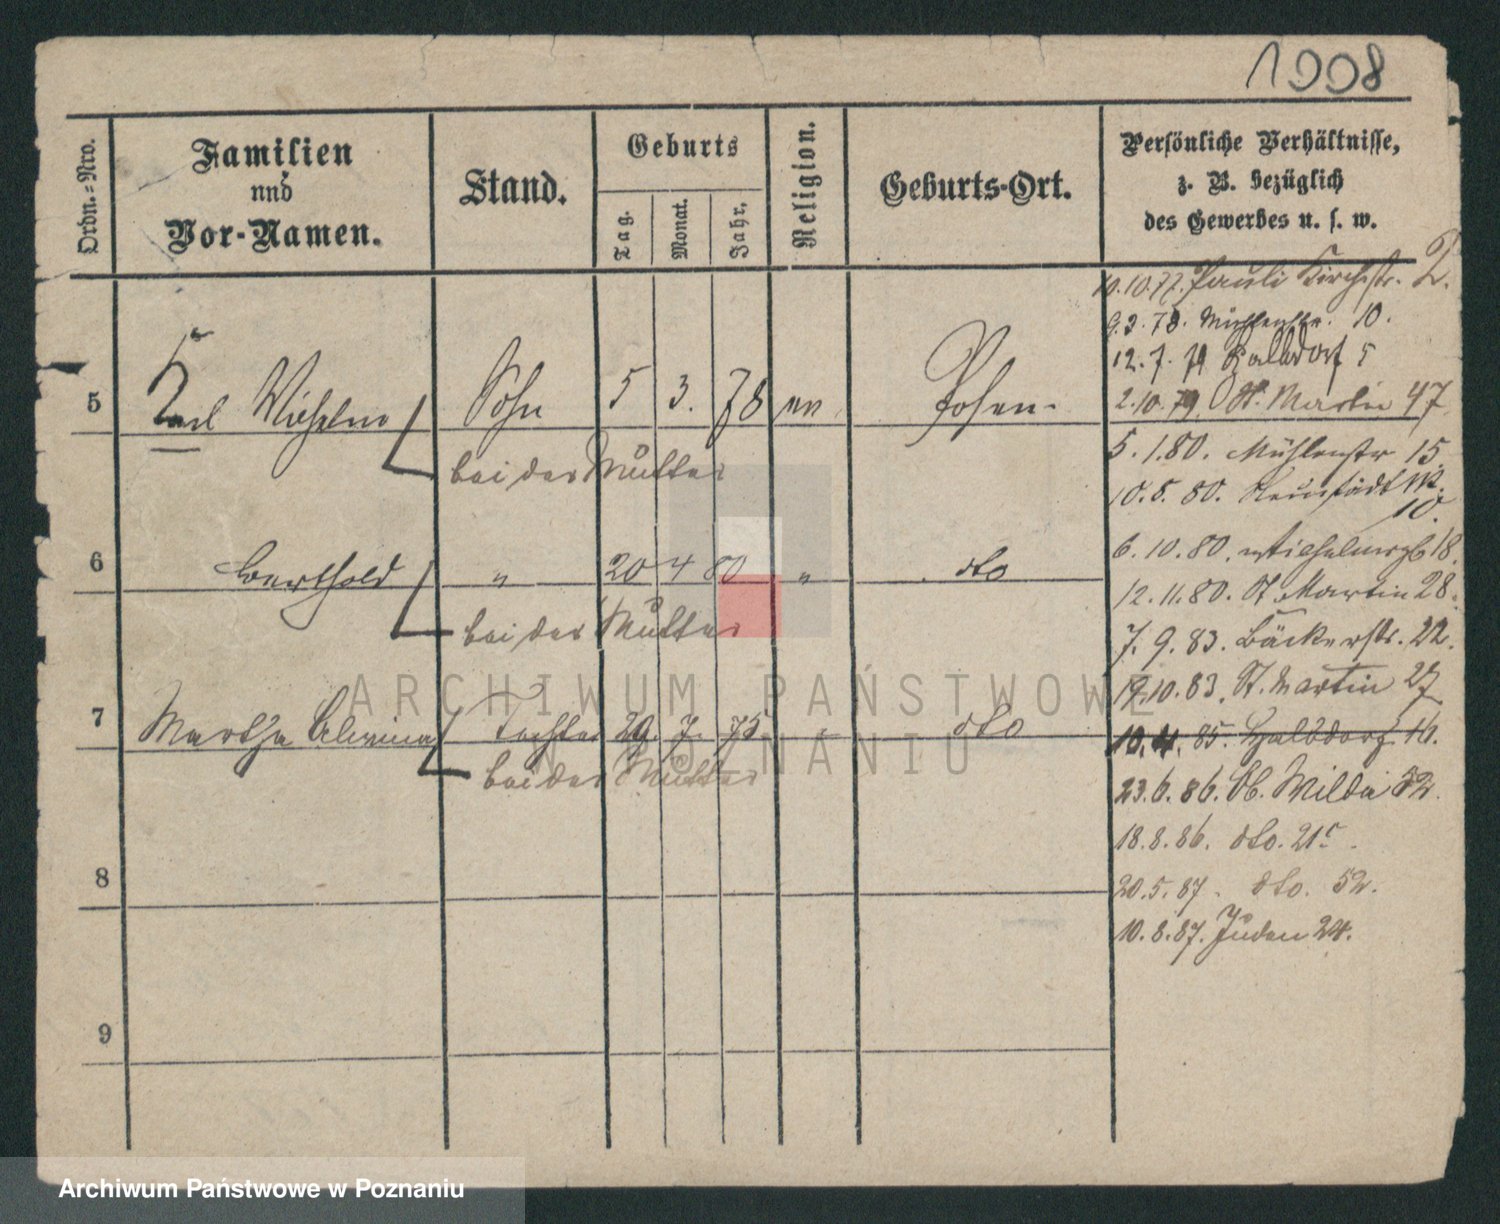 1008
Ordn.=Nro.
Familien
und
Vor-Namen.
Stand.
Geburts
Tag.
Monat.
Jahr.
Religion.
Geburts-Ort.
Persönliche Verhältnisse,
z. B. bezüglich
des Gewerbes u. s. w.
10.10.77. Pauli Kirchstr. 2.
9.3.78. Mühlenstr. 10.
12.7.79 Halbdorf 5
2.10.79. St. Martin 47
5 Karl Wilhelm Sohn 5 3. 78 Posen.
bei der Mutter
5.1.80. Mühlenstr 15.
10.8.80. Neustädt M.
10.
6 Berthold " 20 4 80 " dto
bei der Mutter
6.10.80. Wilhelmspl 18.
12.11.80. St Martin 28.
7.9.83. Bäckerstr. 22.
19.10.83. St. Martin 27
7 Martha Tochter 29. 7. 75 dto
bei der Mutter
10.4.85. Halbdorf 16.
23.6.86. Ob. Wilda 52.
18.8.86. dto. 21
8
20.5.87. dto. 52.
10.8.87. Juden 24.
9
ARCHIWUM PAŃSTWOWE
W POZNANIU
Archiwum Państwowe w Poznaniu